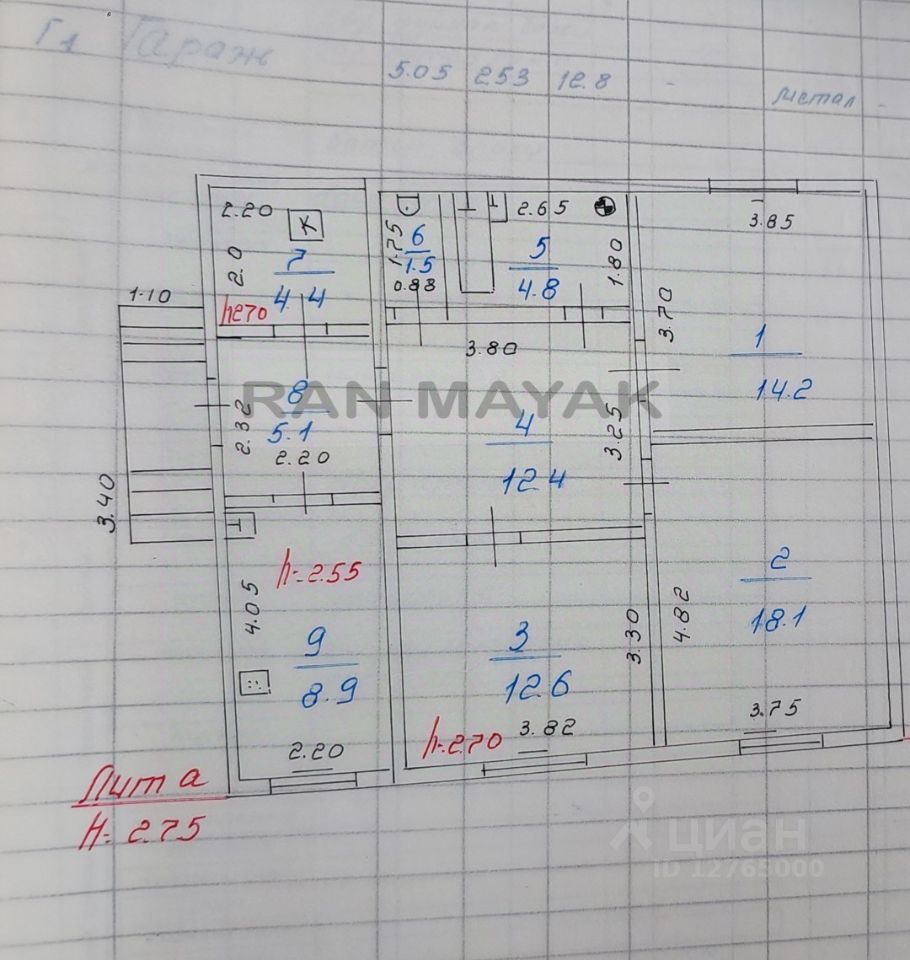 Г1 Гараж
5.05 2.53 12.8 - метал -
2.20
К
2.0
7
4.4
h=2.70
1.75
6
1.5
0.88
2.65
5
4.8
1.80
3.85
3.70
1
14.2
1.10
3.40
2.32
8
5.1
2.20
3.80
4
12.4
3.25
RAN MAYAK
4.05
h=2.55
9
8.9
2.20
3
12.6
3.30
h=2.70
3.82
4.82
2
18.1
3.75
Лит а
H=2.75
циан
ID 12765000